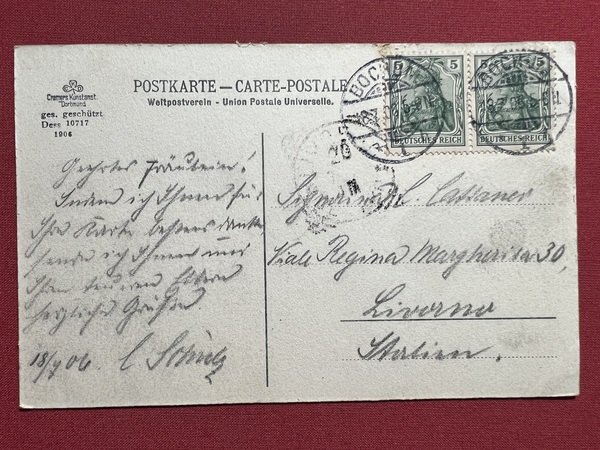 Cramers Kunstanst.
Dortmund
ges. geschützt
Dess 10717
1906
POSTKARTE — CARTE-POSTALE
Weltpostverein - Union Postale Universelle.
5 5
DEUTSCHES REICH
5 5
DEUTSCHES REICH
BOCHUM
BOCHUM
Geehrtes Fräulein!
Indem ich Ihnen für
Ihre Karte bestens danke
sende ich Ihnen und
Ihren teuren Eltern
herzliche Grüße
18/7 06.
Viale Regina Margherita 30,
Livorno
Italien.